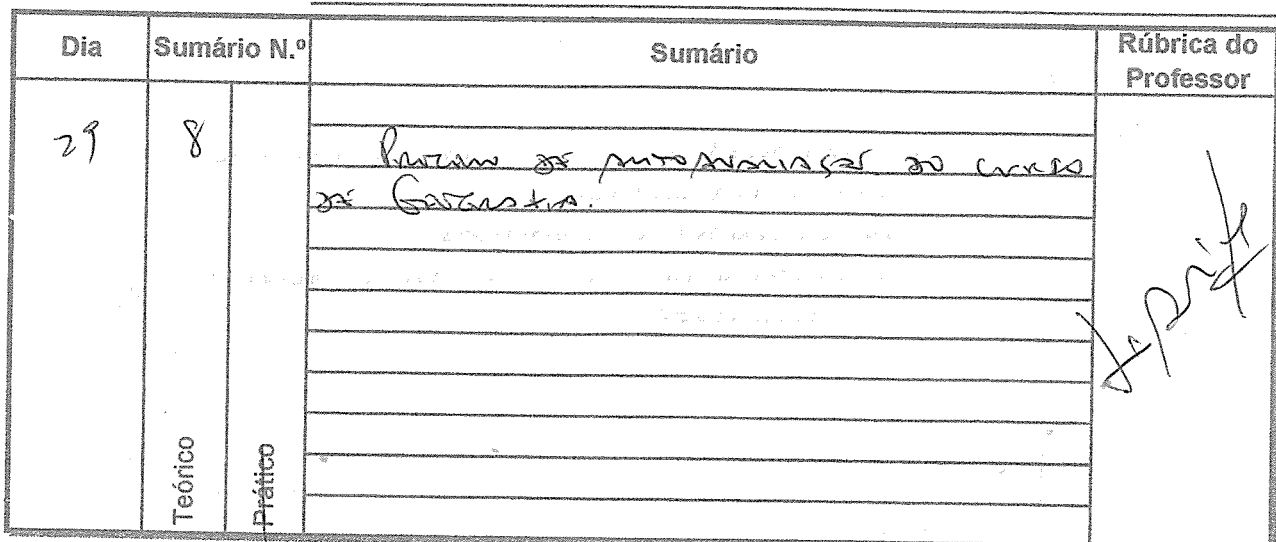 Dia Sumário N.º Sumário Rúbrica do
Professor
29 8 Processo de autoavaliação do curso
de
Teórico Prático